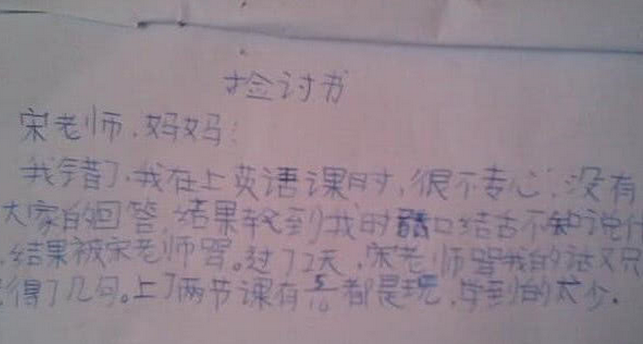 捡讨书
宋老师,妈妈:
我错了,我在上英语课时,很不专心,没有
大家的回答,结果轮到我时口结舌不知说什
,结果被宋老师骂。过了2天,宋老师骂我的话又只
得了几句。上了两节课有5/6都是玩,学到的太少.